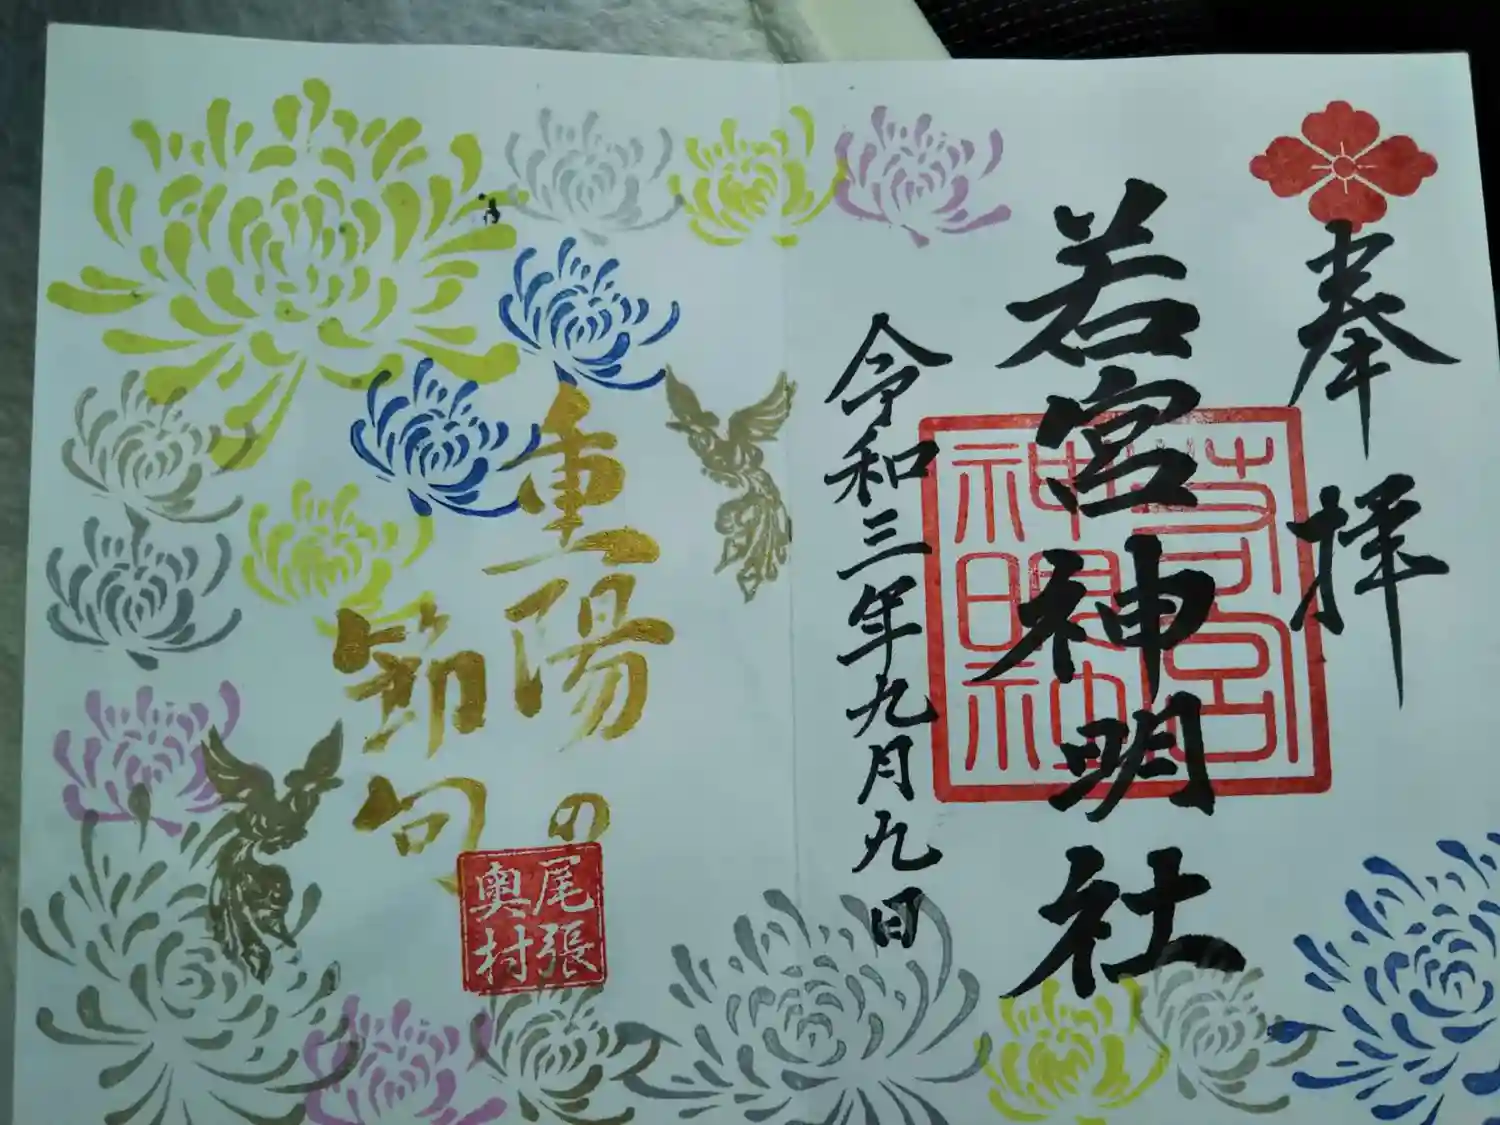 奉拝
若宮神明社
若宮
神明社
令和三年九月九日
重陽の
節句
尾張
奥村